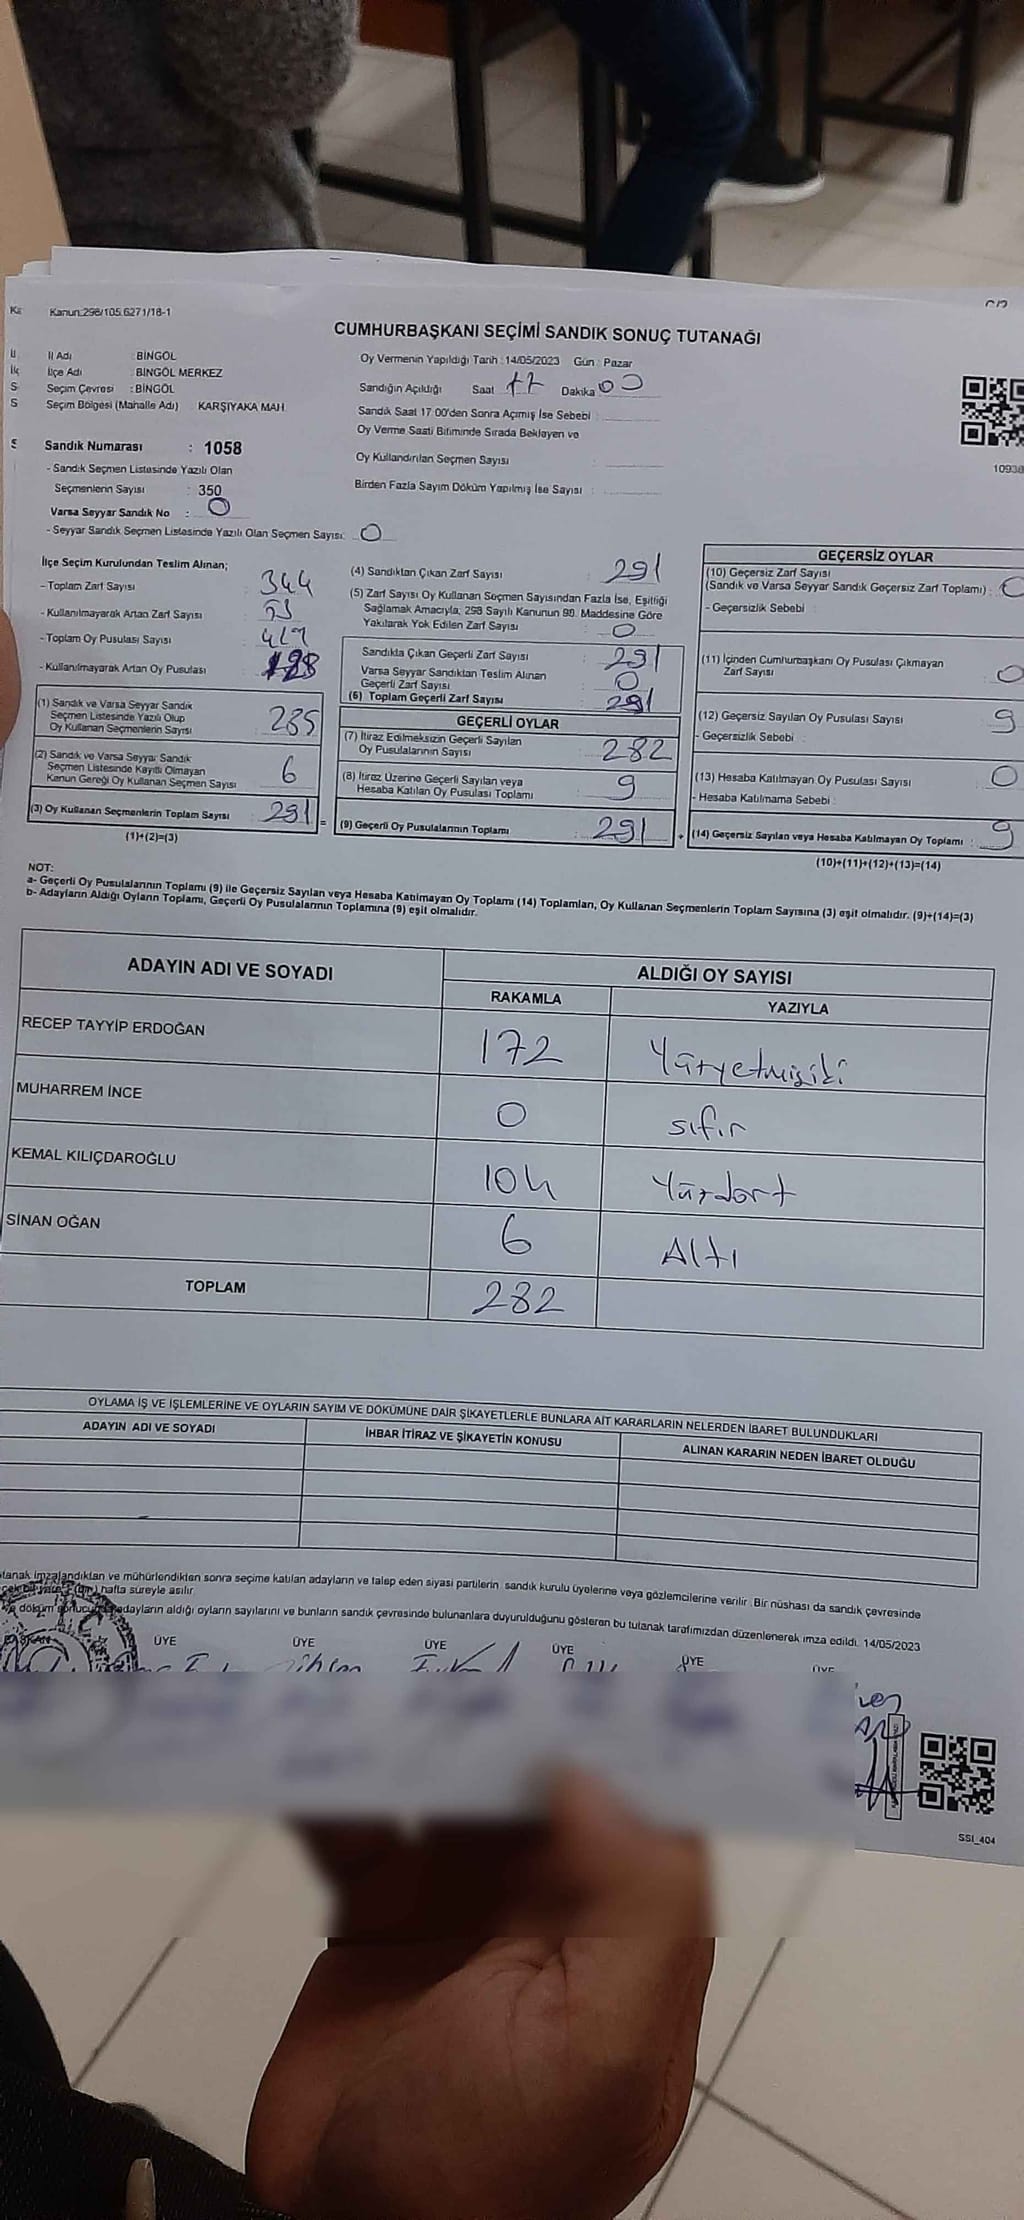 Kanun:298/105.6271/18-1
CUMHURBAŞKANI SEÇİMİ SANDIK SONUÇ TUTANAĞI
İl Adı : BİNGÖL
İlçe Adı : BİNGÖL MERKEZ
Seçim Çevresi : BİNGÖL
Seçim Bölgesi (Mahalle Adı) KARŞIYAKA MAH.
Oy Vermenin Yapıldığı Tarih : 14/05/2023 Gün : Pazar
Sandığın Açıldığı Saat 17 Dakika 00
Sandık Saat 17 00'den Sonra Açımış İse Sebebi :
Oy Verme Saati Bitiminde Sırada Bekleyen ve
Oy Kullandırılan Seçmen Sayısı :
Birden Fazla Sayım Döküm Yapılmış İse Sayısı :
10938
Sandık Numarası : 1058
- Sandık Seçmen Listesinde Yazılı Olan
Seçmenlerin Sayısı : 350
Varsa Seyyar Sandık No : 0
- Seyyar Sandık Seçmen Listesinde Yazılı Olan Seçmen Sayısı: 0
İlçe Seçim Kurulundan Teslim Alınan;
- Toplam Zarf Sayısı : 344
- Kullanılmayarak Artan Zarf Sayısı : 53
- Toplam Oy Pusulası Sayısı : 419
- Kullanılmayarak Artan Oy Pusulası : 128
(1) Sandık ve Varsa Seyyar Sandık
Seçmen Listesinde Yazılı Olup
Oy Kullanan Seçmenlerin Sayısı : 285
(2) Sandık ve Varsa Seyyar Sandık
Seçmen Listesinde Kayıtlı Olmayan
Kanun Gereği Oy Kullanan Seçmen Sayısı : 6
(3) Oy Kullanan Seçmenlerin Toplam Sayısı : 291
(1)+(2)=(3)
(4) Sandıktan Çıkan Zarf Sayısı : 291
(5) Zarf Sayısı Oy Kullanan Seçmen Sayısından Fazla İse, Eşitliği
Sağlamak Amacıyla, 298 Sayılı Kanunun 98. Maddesine Göre
Yakılarak Yok Edilen Zarf Sayısı : 0
Sandıkta Çıkan Geçerli Zarf Sayısı : 291
Varsa Seyyar Sandıktan Teslim Alınan
Geçerli Zarf Sayısı : 0
(6) Toplam Geçerli Zarf Sayısı : 291
GEÇERLİ OYLAR
(7) İtiraz Edilmeksizin Geçerli Sayılan
Oy Pusulalarının Sayısı : 282
(8) İtiraz Üzerine Geçerli Sayılan veya
Hesaba Katılan Oy Pusulası Toplamı : 9
(9) Geçerli Oy Pusulalarının Toplamı : 291
GEÇERSİZ OYLAR
(10) Geçersiz Zarf Sayısı
(Sandık ve Varsa Seyyar Sandık Geçersiz Zarf Toplamı) : 0
- Geçersizlik Sebebi :
(11) İçinden Cumhurbaşkanı Oy Pusulası Çıkmayan
Zarf Sayısı : 0
(12) Geçersiz Sayılan Oy Pusulası Sayısı : 9
- Geçersizlik Sebebi :
(13) Hesaba Katılmayan Oy Pusulası Sayısı : 0
- Hesaba Katılmama Sebebi :
(14) Geçersiz Sayılan veya Hesaba Katılmayan Oy Toplamı : 9
(10)+(11)+(12)+(13)=(14)
NOT:
a- Geçerli Oy Pusulalarının Toplamı (9) ile Geçersiz Sayılan veya Hesaba Katılmayan Oy Toplamı (14) Toplamları, Oy Kullanan Seçmenlerin Toplam Sayısına (3) eşit olmalıdır. (9)+(14)=(3)
b- Adayların Aldığı Oyların Toplamı, Geçerli Oy Pusulalarının Toplamına (9) eşit olmalıdır.
ADAYIN ADI VE SOYADI ALDIĞI OY SAYISI
RAKAMLA YAZIYLA
RECEP TAYYİP ERDOĞAN 172 Yüzyetmişiki
MUHARREM İNCE 0 sıfır
KEMAL KILIÇDAROĞLU 104 Yüzdört
SİNAN OĞAN 6 Altı
TOPLAM 282
OYLAMA İŞ VE İŞLEMLERİNE VE OYLARIN SAYIM VE DÖKÜMÜNE DAİR ŞİKAYETLERLE BUNLARA AİT KARARLARIN NELERDEN İBARET BULUNDUKLARI
ADAYIN ADI VE SOYADI İHBAR İTİRAZ VE ŞİKAYETİN KONUSU ALINAN KARARIN NEDEN İBARET OLDUĞU
tanak imzalandıktan ve mühürlendikten sonra seçime katılan adayların ve talep eden siyasi partilerin sandık kurulu üyelerine veya gözlemcilerine verilir. Bir nüshası da sandık çevresinde
hafta süreyle asılır.
adayların aldığı oyların sayılarını ve bunların sandık çevresinde bulunanlara duyurulduğunu gösteren bu tutanak tarafımızdan düzenlenerek imza edildi. 14/05/2023
ÜYE ÜYE ÜYE ÜYE ÜYE ÜYE
SSI_404